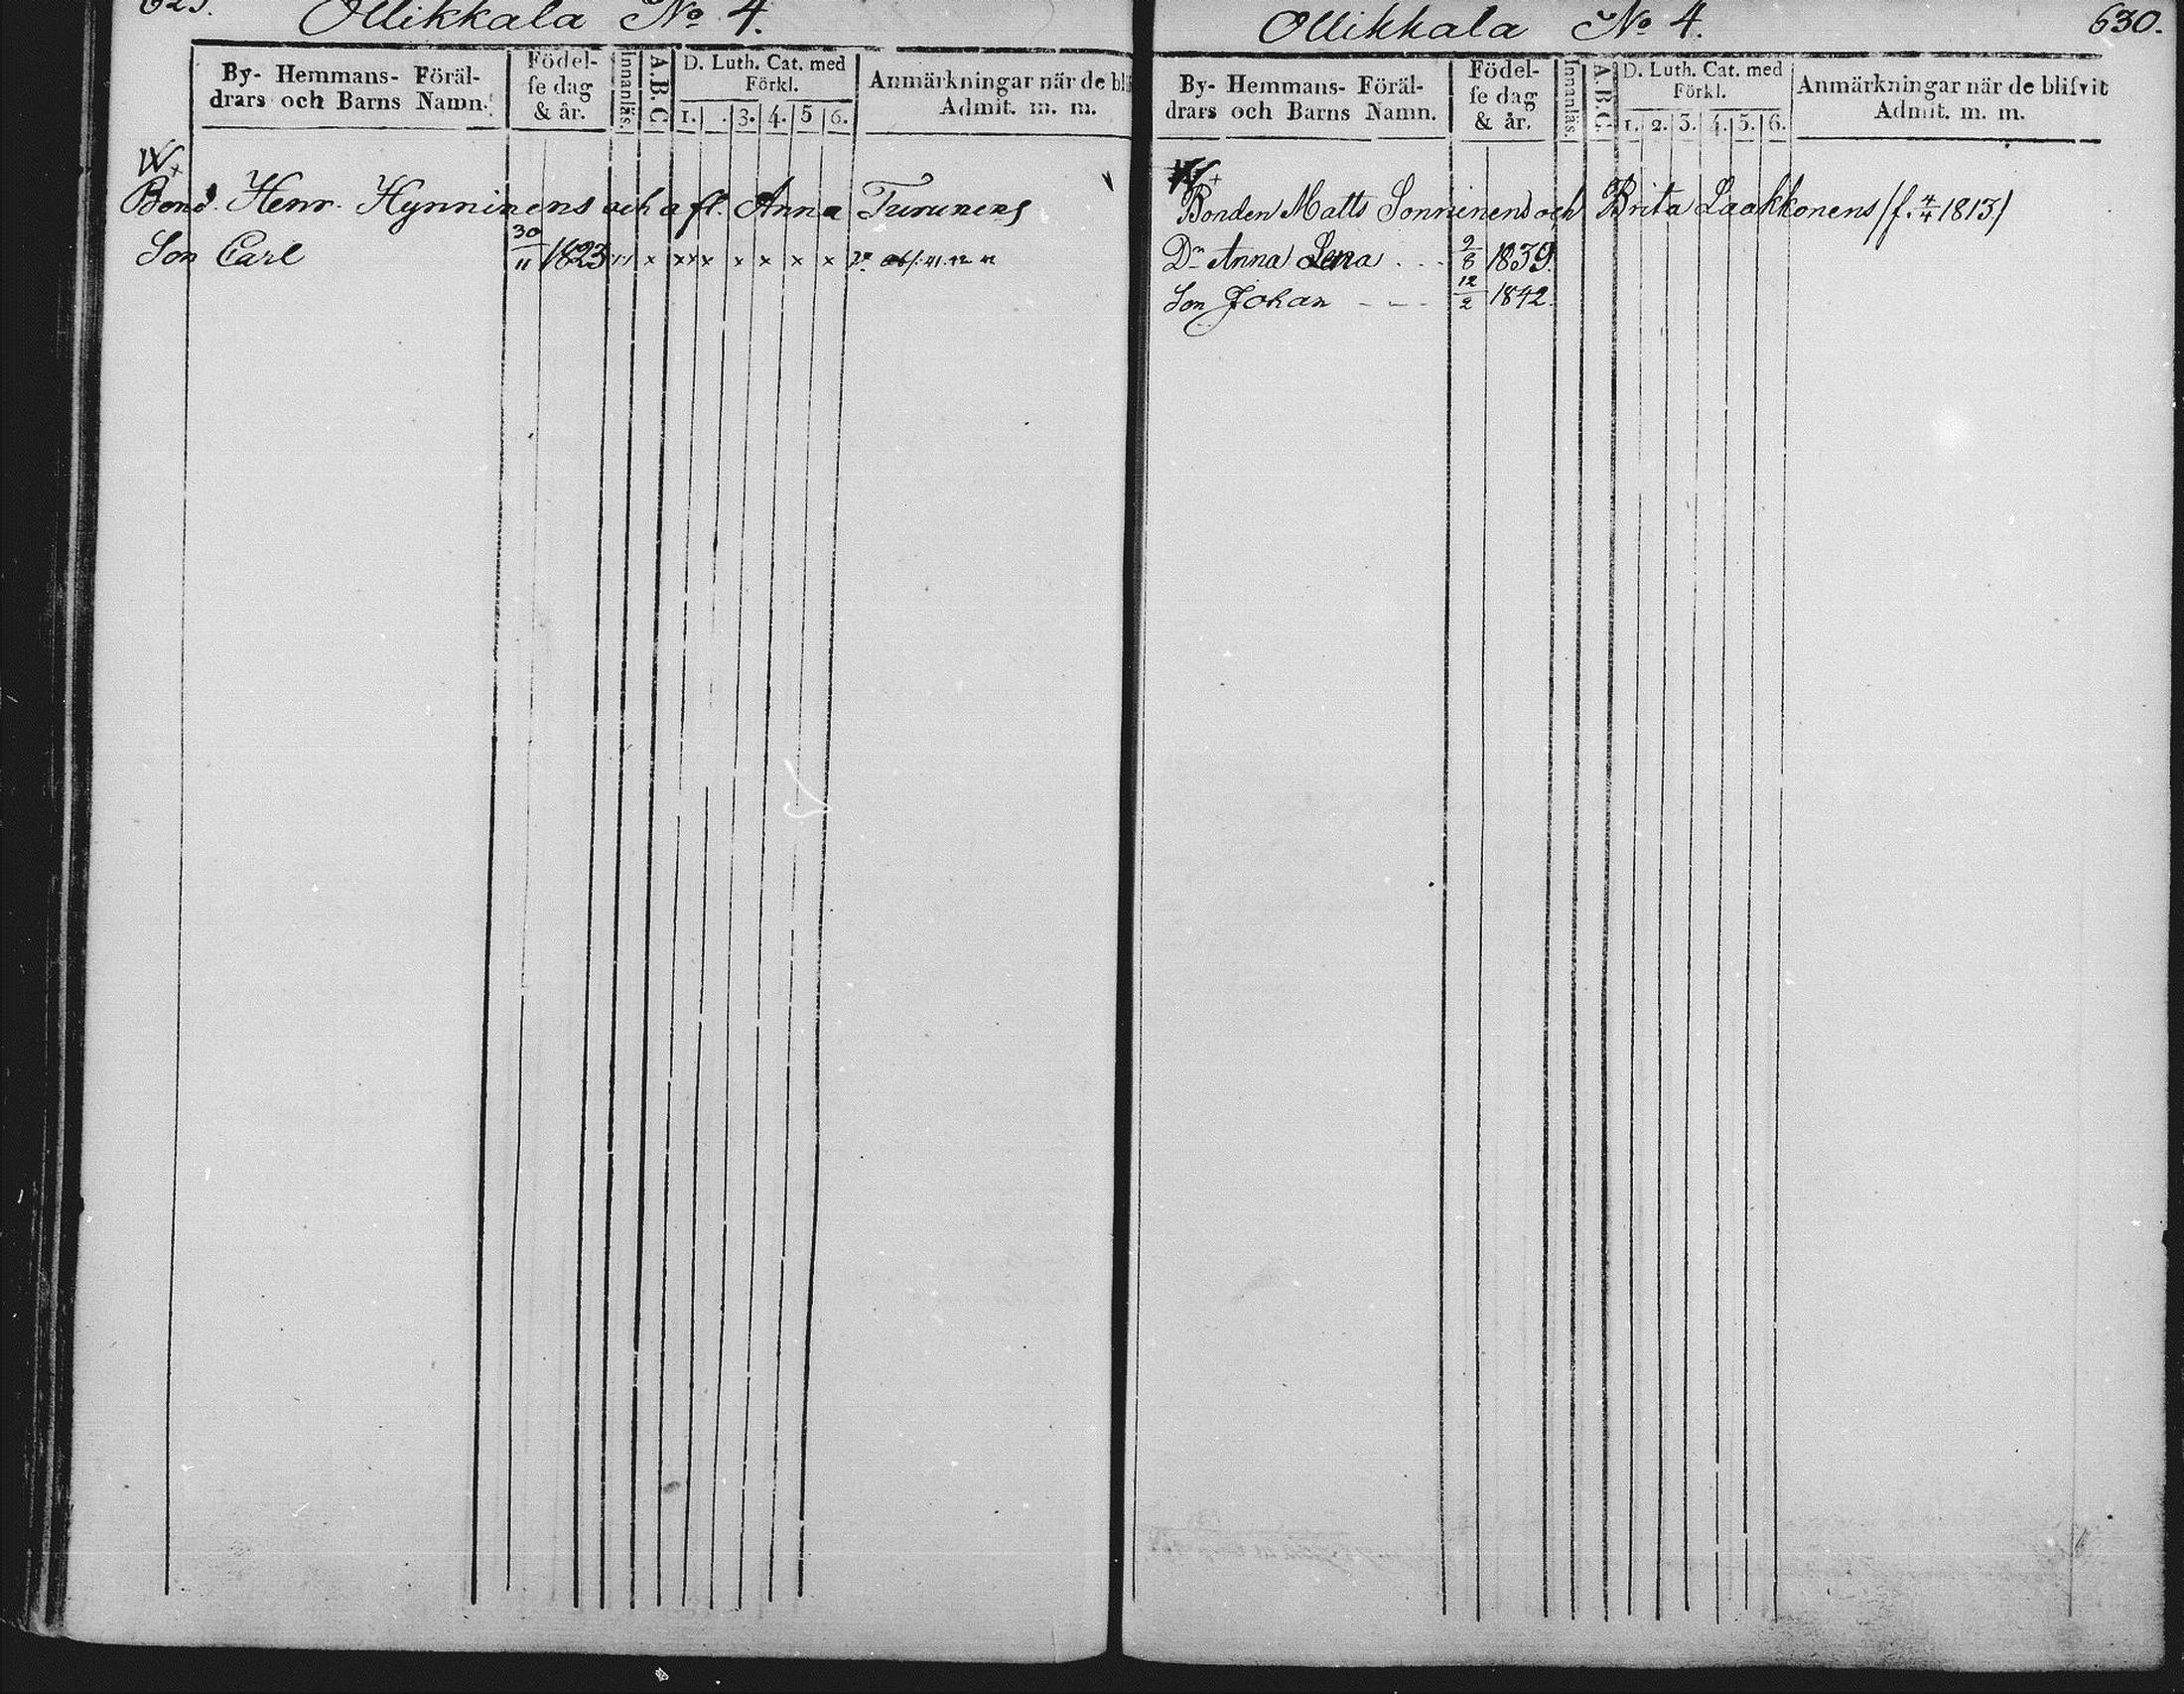 Ollikkala No 4.
By- Hemmans- Föräl-
drars och Barns Namn.
Födel-
se dag
& år.
Innanläs.
A.B.C.
D. Luth. Cat. med
Förkl.
1. 3. 4. 5 6.
Anmärkningar när de bli
Admit. m. m.
Bond. Henr. Hynninens och afl. Anna Turunens
Son Carl 30/11 1823 x x x x x x x
Ollikkala No 4.
630.
By- Hemmans- Föräl-
drars och Barns Namn.
Födel-
se dag
& år.
Innanläs.
A.B.C.
D. Luth. Cat. med
Förkl.
1. 2. 3. 4. 5. 6.
Anmärkningar när de blifvit
Admit. m. m.
Bonden Matts Sonninens och Brita Laakkonens (f. 4/4 1813)
Dr Anna Lena 9/8 1839.
Son Johan 12/2 1842.